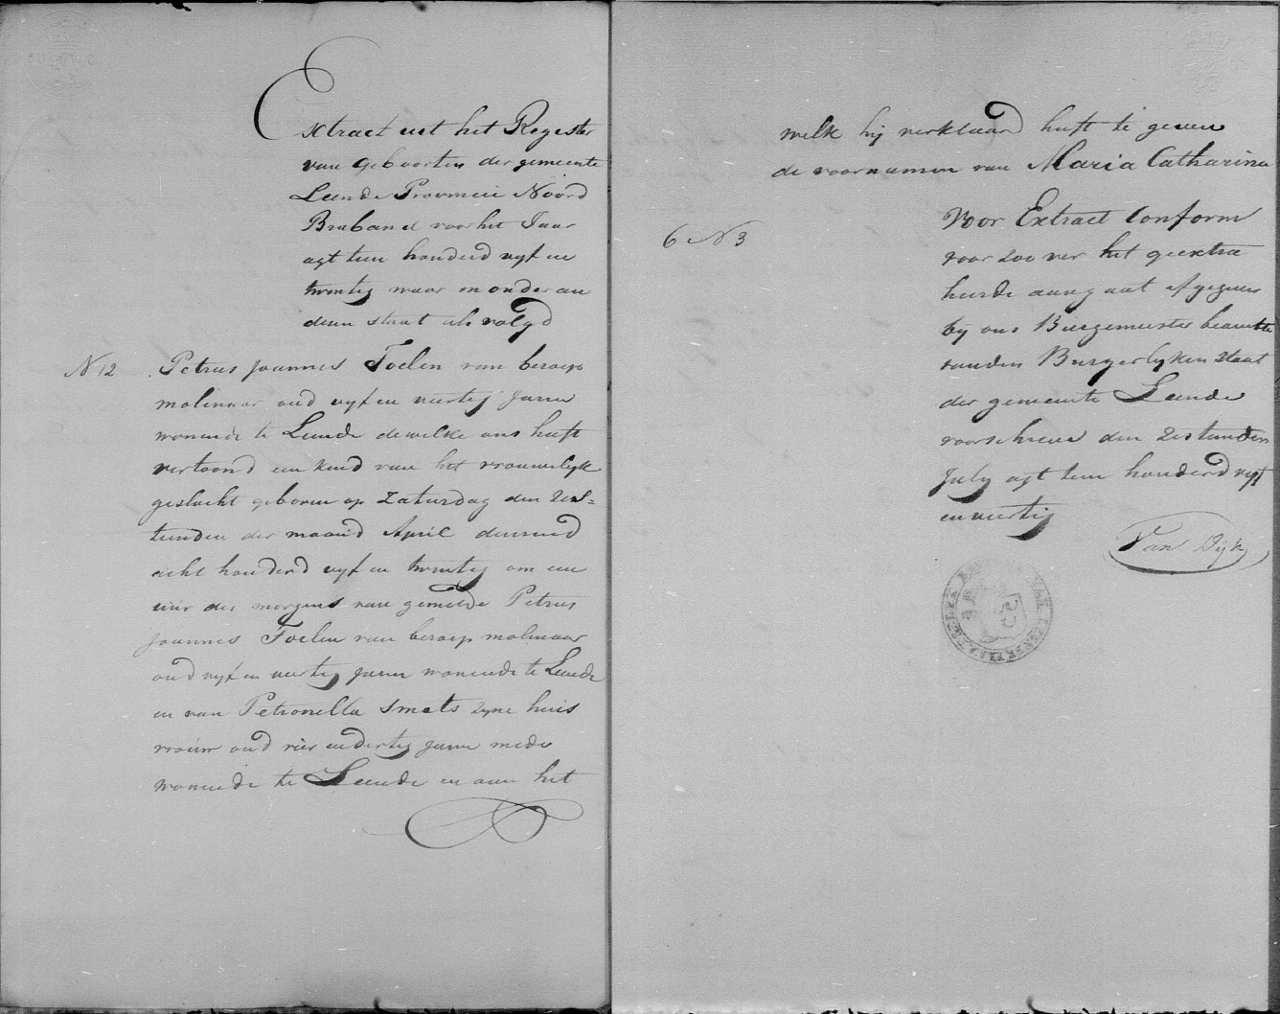 Extract uit het Register
van Geboorten der gemeente
Leende Provincie Noord
Braband voor het Jaar
agt tien honderd vyf en
twintig waar in onder an
dere staat als volgd
N 12 Petrus Joannes Toelen van beroep
molenaar oud vyf en veertig jaren
wonende te Leende dewelke ons heeft
vertoond een kind van het vrouwelyk
geslacht geboren op Zaturdag den Zes-
tienden der maand April duizend
acht honderd vyf en twintig om een
uur des morgens van gemelde Petrus
Joannes Toelen van beroep molenaar
oud vyf en veertig jaren wonende te Leende
en van Petronella Smets zyne huis
vrouw oud vier en dertig jaren mede
wonende te Leende en aan het
welk hij verklaard heeft te geven
de voornamen van Maria Catharina
6 N 3
Voor Extract Conform
voor zoo ver het geextra
heerde aangaat afgegeven
bij ons Burgemeester beambte
van den Burgerlyken Staat
der gemeente Leende
voorschreven den Zestienden
July agt tien honderd vyf
en veertig
Van Dijk